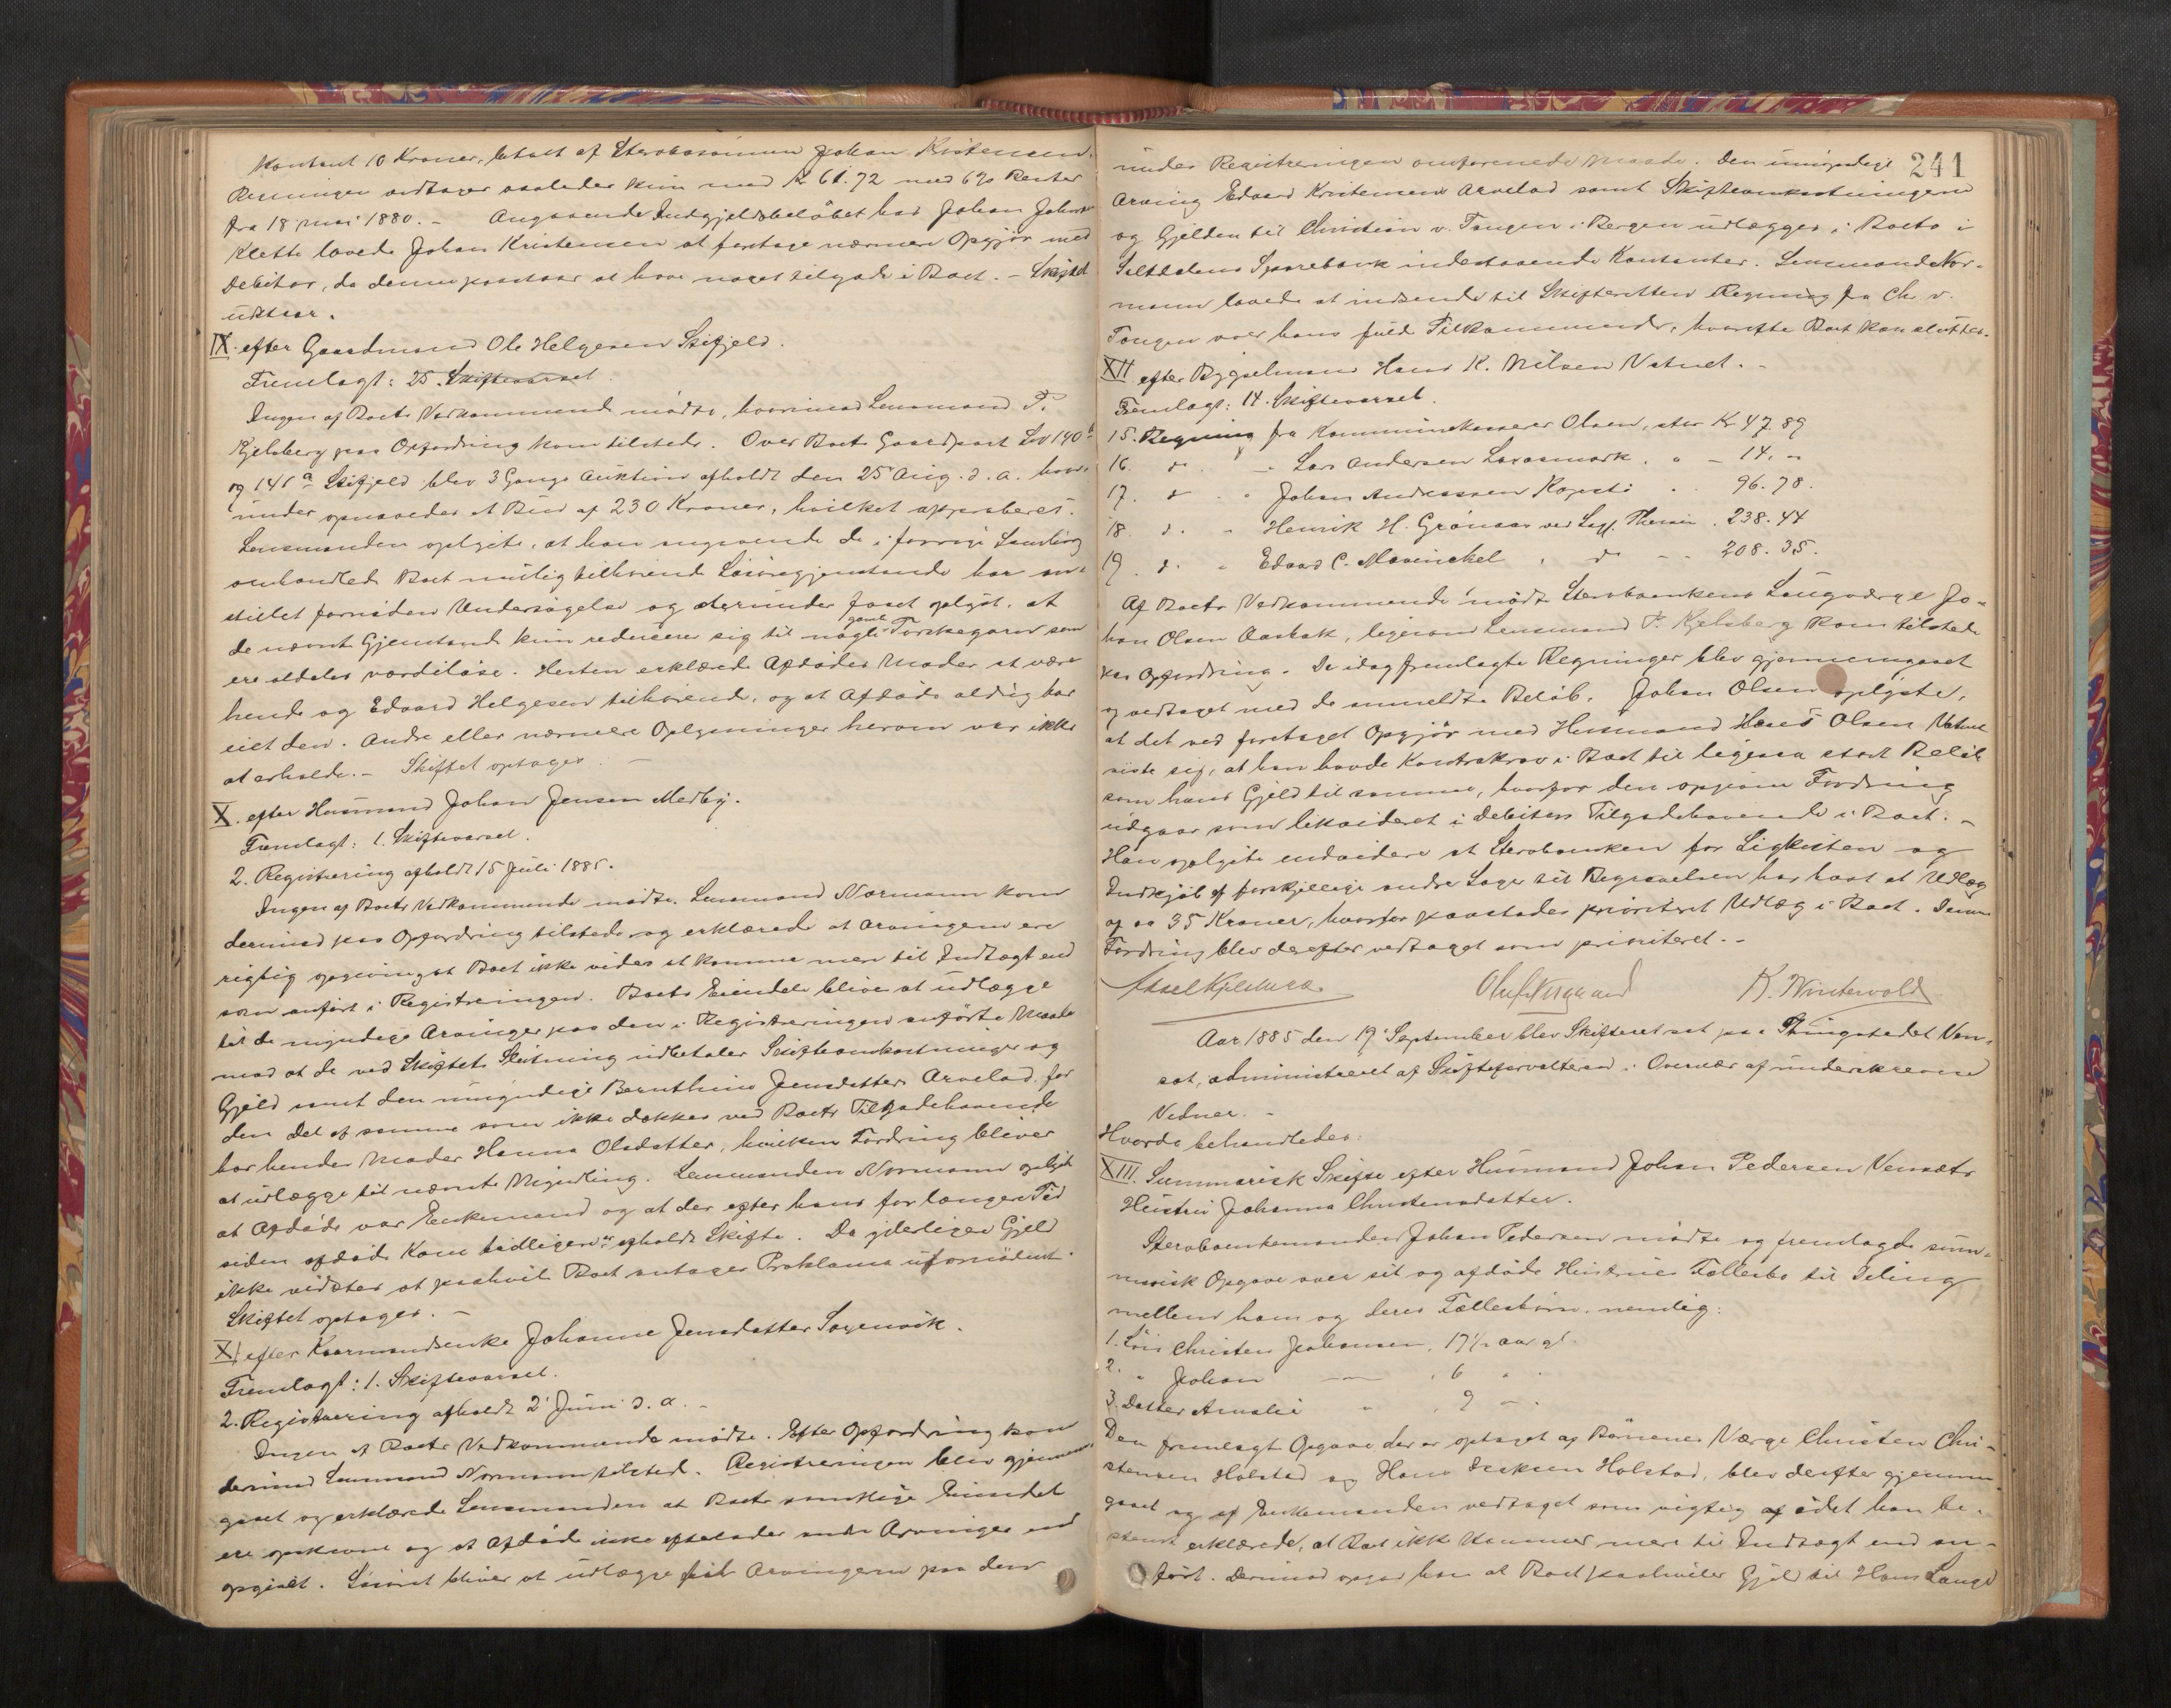 Kontant 10 Kroner, betalt af Sterbosönnen Johan Kristensen.
Regningen vedtages saaledes kun med Kr 61.72 med 6% Renter
fra 18 Mai 1880. – Angaaende Indgjeldsbeløbet hos Johan Johns
Klette lovede Johan Kristensen at foretage nærmere Opgjør med
Debitor, da denne paastaar at have noget tilgode i Boet. – Skiftet
udstaar.
IX. efter Gaardmand Ole Helgesen Skifjeld.
Fremlagt: 25. Skiftevarsel.
Ingen af Boets Vedkommende mødte, hvorimod Lensmand P.
Kjelsberg paa Opfordring kom tilstede. Over Boets Gaardpart Lnr 140
og 141a Skifjeld blev 3 Gangs Auktion afholdt den 25 Aug. d. a. hvor-
under opnaaedes et Bud af 230 Kroner, hvilket approberes.
Lensmanden oplyste, at han angaaende de i forrige Samling
omhandlede Boet mulig tilhørende Løsøregjenstande har an-
stillet fornøden Undersøgelse og derunder faaet oplyst, at
de nævnte Gjenstande kun reducere sig til nogle gamle Torskegarn som
ere aldeles værdiløse. Hesten erklærede Afdødes Moder at være
hende og Edvard Helgesen tilhørende, og at Afdøde aldrig har
eiet den. Andre eller nærmere Oplysninger herom var ikke
at erholde. – Skiftet optages. –
X. efter Husmand Johan Jensen Medby.
Fremlagt: 1. Skiftevarsel.
2. Registrering afholdt 15 Juli 1885.
Ingen af Boets Vedkommende mødte. Lensmand Normann kom
derimod paa Opfordring tilstede og erklærede at Arvingerne ere
rigtig opgivne og at Boet ikke vides at komme mere til Indtægt end
som anført i Registreringen. Boets Eiendele blive at udlægge
til de myndige Arvinger paa den i Registreringen anførte Maade
mod at de ved Skiftets Slutning udbetaler Skifteomkostninger og
Gjeld samt den umyndige Bernthine Jensdatters Arvelod for
den Del af samme som ikke dækkes ved Boets Tilgodehavende
hos hendes Moder Hanna Olsdatter, hvilken Fordring bliver
at udlægge til nævnte Myndling. Lensmanden Normann oplyste
at Afdøde var Enkemand og at der efter hans for længere Tid
siden afdøde Kone tidligere er afholdt Skifte. Da yderligere Gjeld
ikke vidstes at paahvile Boet antages Proklama ufornødent.
Skiftet optages. –
XI efter Kaarmandsenke Johanne Jensdatter Saxenvik.
Fremlagt: 1. Skiftevarsel.
2. Registrering afholdt 2 Juni d. a. –
Ingen af Boets Vedkommende mødte. Efter Opfordring kom
derimod Lensmand Normann tilstede. Registreringen blev gjennem-
gaaet og erklærede Lensmanden at Boets samtlige Eiendele
ere opskrevne og at Afdøde ikke efterlader andre Arvinger end
opgivet. Løsøret bliver at udlægge til Arvingerne paa den
241
under Registreringen omforenede Maade. Den umyndige
Arving Edvard Kristensens Arvelod samt Skifteomkostningerne
og Gjelden til Christian v. Tangen i Bergen udlægges i Boets i
Saltdalens Sparebank indestaaende Kontanter. Lensmand Nor-
mann lovede at indsende til Skifteretten Regning fra Ch. v.
Tangen over hans fulde Tilkommende, hvorefter Boet kan sluttes.
XII. efter Bygselmand Hans K. Nilsen Vatnet. –
Fremlagt: 14. Skiftevarsel.
15. Regning fra Kommunekasserer Olsen, stor Kr 47.89
16. do. " Lars Andersen – 14. –
17. do " Johan Andreassen 96.78.
18. d. " Henrik H. Grönaas ved Sagf. 238.44
19. d. " Edvard C. Mowinckel, do – 208.35.
Af Boets Vedkommende mødte Sterboenkens Laugværge Jo-
han Olsen Aasbak, ligesom Lensmand P. Kjelsberg kom tilstede
paa Opfordring. De idag fremlagte Regninger blev gjennemgaaet
og vedtaget med de anmeldte Beløb. Johan Olsen oplyste,
at det ved foretaget Opgjør med Husmand Olsen Vatnet
viste sig, at han havde Kontrakrav i Boet til ligesaa stort Beløb
som hans Gjeld til samme, hvorfor den opgivne Fordring
udgaar som likvideret i Debitors Tilgodehavende i Boet. –
Han oplyste endvidere at Sterboenken for Ligkisten og
Indkjøb af forskjellige andre Sager til Begravelsen har havt et Udlæg
af 35 Kroner, hvorfor paastodes prioriteret Udlæg i Boet. Denne
Fordring blev derefter vedtaget som prioriteret. –
K. Winterwold
Aar 1885 den 19 September blev Skifteret sat paa Thingstedet Ven-
set, administreret af Skifteforvalteren i Overvær af underskrevne
Vidner. –
Hvorda behandledes:
XIII. Summarisk Skifte efter Husmand Johan Pedersen Vensets
Hustru Johanna Christensdatter.
Sterboenkemanden Johan Pedersen mødte og fremlagde sum-
marisk Opgave over sit og afdøde Hustrues Fællesbo til Deling
mellem ham og deres Fællesbørn, nemlig:
1. Søn Christen Johansen, 17½ aar gl.
2. " Johan — , 6 " .
3. Datter Amalie " , 2 – .
Den fremlagte Opgave der er optaget af Børnenes Værge Christen Chri-
stensen Holstad og Hans Isaksen Holstad, blev derefter gjennem-
gaaet og af Enkemanden vedtaget som rigtig af idet han be-
stemt erklærede, at Boet ikke kommer mere til Indtægt end an-
ført. Derimod opgav han at Boet paahviler Gjeld til Hans Lange